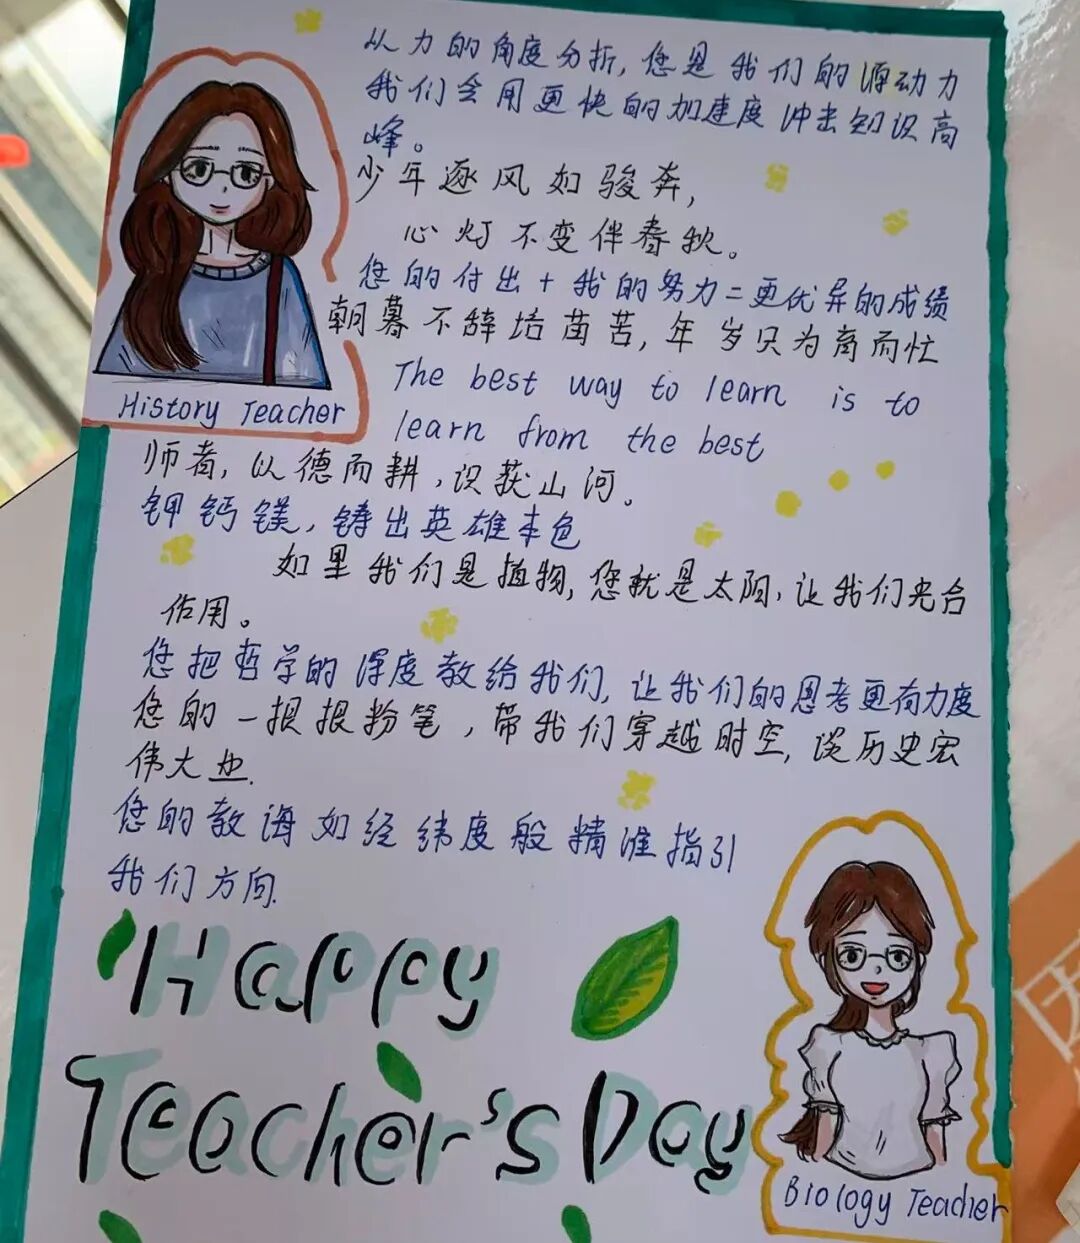 从力的角度分析，您是我们的源动力
我们会用更快的加速度冲击知识高
峰。
少年逐风如骏奔，
心灯不变伴春秋。
您的付出+我的努力=更优异的成绩
朝暮不辞培苗苦，年岁只为育而忙
The best way to learn is to
learn from the best
History Teacher
师者，以德而耕，识获山河。
钾钙镁，铸出英雄本色
如果我们是植物，您就是太阳，让我们光合
作用。
您把哲学的深度教给我们，让我们的思考更有力度
您的一根根粉笔，带我们穿越时空，谈历史宏
伟大业.
您的教诲如经纬度般精准指引
我们方向.
Happy
Teacher's Day
Biology Teacher